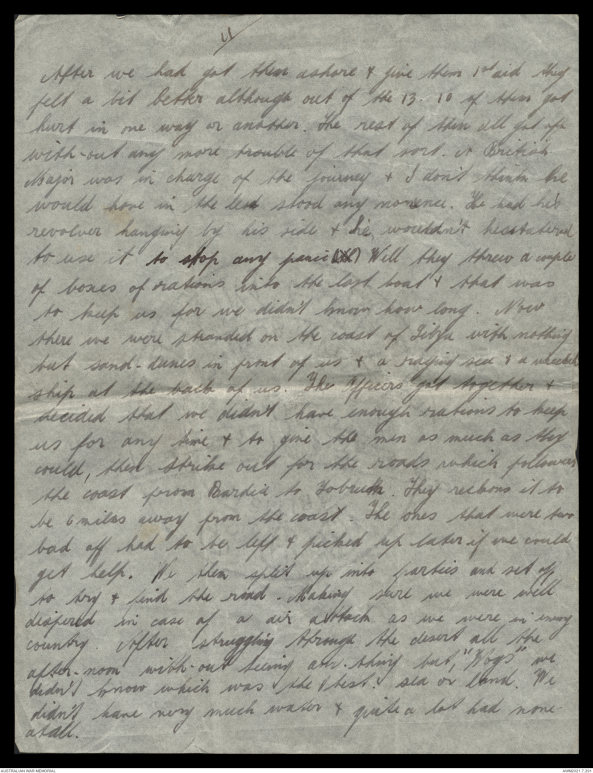 11
After we had got them ashore & give them 1st aid they
felt a bit better although out of the 13. 10 of them got
hurt in one way or another. The rest of them all got off
with-out any more trouble of that sort. A British
Major was in charge of the journey & I don't think he
would have in the least stood any nonsence. He had his
revolver hanging by his side & he wouldn't heastated
to use it to stop any panic Well they threw a couple
of boxes of rations into the last boat & that was
to keep us for we didn't know how long. Now
there we were stranded on the coast of Libya with nothing
but sand-dunes in front of us & a raging sea & a wrecked
ship at the back of us. The officers got together &
decided that we didn't have enough rations to keep
us for any time & to give the men as much as they
could, then strike out for the roads which followed
the coast from Bardia to Tobruch. They reckons it to
be 6 miles away from the coast. The ones that were two
bad off had to be left & picked up later if we could
get help. We then split up into parties and set off
to try & find the road. Making sure we were well
dispered in case of a air attack as we were in enemy
country. After struggling through the desert all the
after-noon with-out seeing any-thing but, "Wogs" we
didn't know which was the best. sea or land. We
didn't have very much water & quite a lot had none
atall.
AUSTRALIAN WAR MEMORIAL